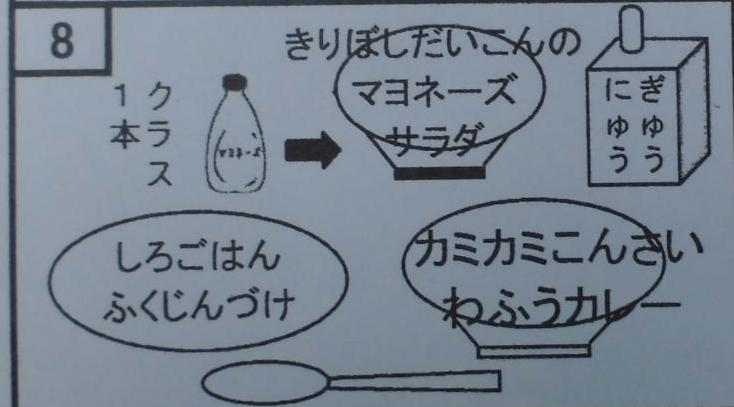 8
クラス
1本
マヨネーズ
きりぼしだいこんの
マヨネーズ
サラダ
ぎゅう
にゅう
しろごはん
ふくじんづけ
カミカミこんさい
わふうカレー